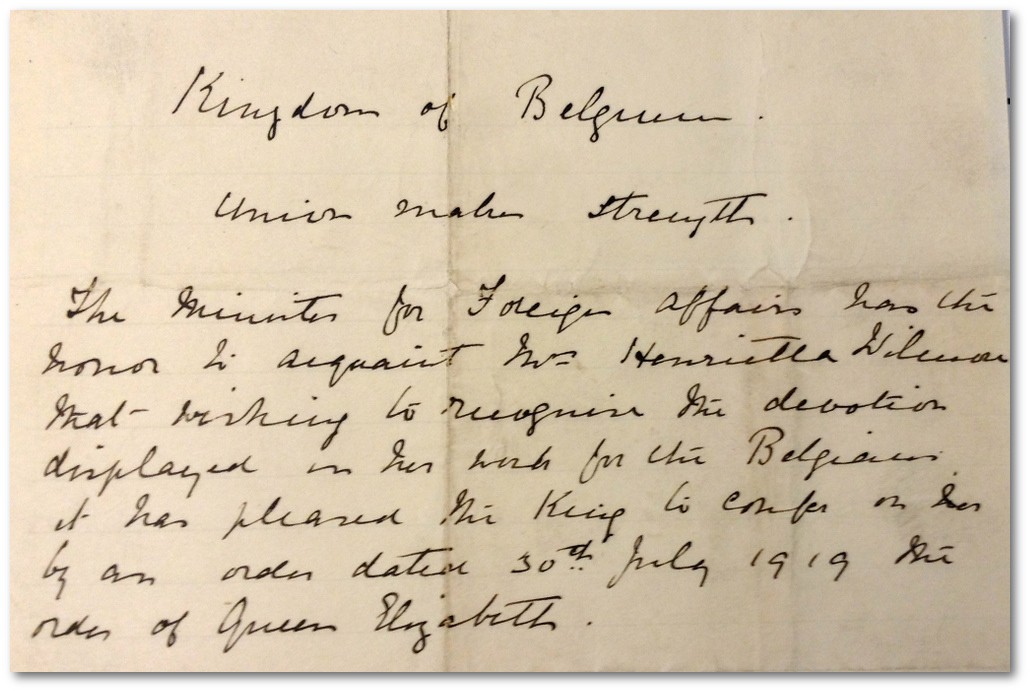 Kingdom of Belgium.
Union makes Strength.
The Minister for Foreign Affairs has the
honor to acquaint Mrs Henrietta Wilmore
that wishing to recognise the devotion
displayed in her work for the Belgians
it has pleased the King to confer on her
by an order dated 30th July 1919 the
order of Queen Elizabeth.